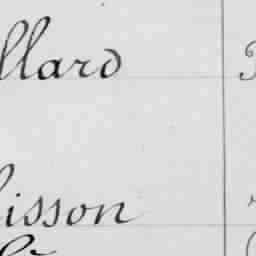 llard
isson